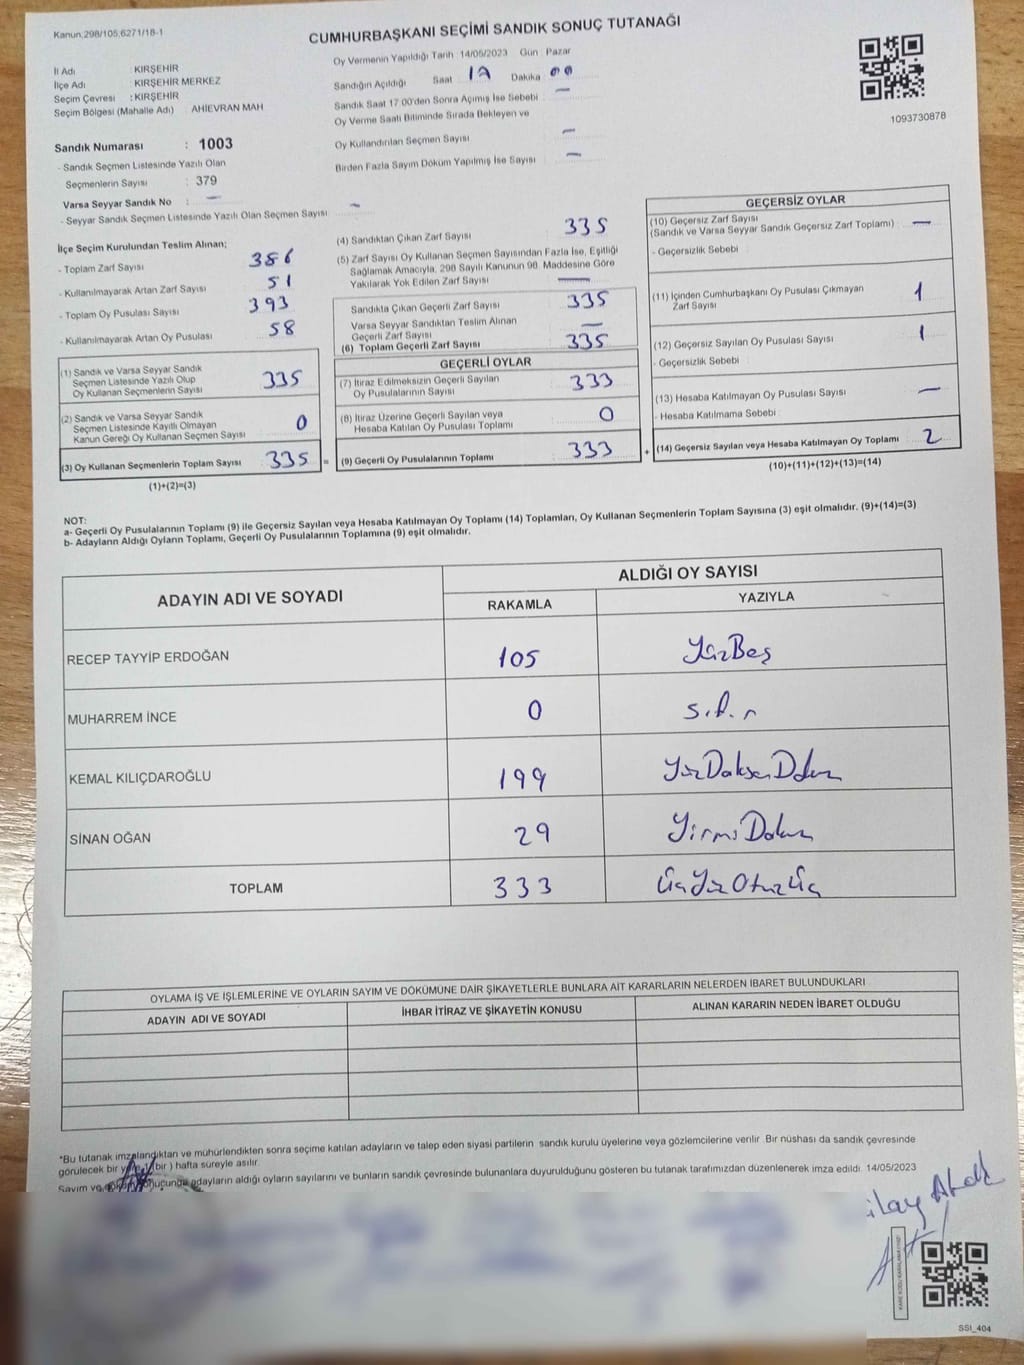 Kanun;298/105;6271/18-1
CUMHURBAŞKANI SEÇİMİ SANDIK SONUÇ TUTANAĞI
İl Adı KIRŞEHİR
İlçe Adı KIRŞEHİR MERKEZ
Seçim Çevresi : KIRŞEHİR
Seçim Bölgesi (Mahalle Adı) : AHİEVRAN MAH
Oy Vermenin Yapıldığı Tarih :14/05/2023 Gün : Pazar
Sandığın Açıldığı Saat : 17 Dakika : 00
Sandık Saat 17.00'den Sonra Açımış İse Sebebi —
Oy Verme Saati Bitiminde Sırada Bekleyen ve
Oy Kullandırılan Seçmen Sayısı —
Birden Fazla Sayım Döküm Yapılmış İse Sayısı —
1093730878
Sandık Numarası : 1003
- Sandık Seçmen Listesinde Yazılı Olan
Seçmenlerin Sayısı : 379
Varsa Seyyar Sandık No : —
- Seyyar Sandık Seçmen Listesinde Yazılı Olan Seçmen Sayısı —
İlçe Seçim Kurulundan Teslim Alınan;
- Toplam Zarf Sayısı 386
- Kullanılmayarak Artan Zarf Sayısı 51
- Toplam Oy Pusulası Sayısı 393
- Kullanılmayarak Artan Oy Pusulası 58
(1) Sandık ve Varsa Seyyar Sandık
Seçmen Listesinde Yazılı Olup
Oy Kullanan Seçmenlerin Sayısı 335
(2) Sandık ve Varsa Seyyar Sandık
Seçmen Listesinde Kayıtlı Olmayan
Kanun Gereği Oy Kullanan Seçmen Sayısı 0
(3) Oy Kullanan Seçmenlerin Toplam Sayısı 335 =
(1)+(2)=(3)
(4) Sandıktan Çıkan Zarf Sayısı 335
(5) Zarf Sayısı Oy Kullanan Seçmen Sayısından Fazla İse, Eşitliği
Sağlamak Amacıyla, 298 Sayılı Kanunun 98. Maddesine Göre
Yakılarak Yok Edilen Zarf Sayısı —
Sandıkta Çıkan Geçerli Zarf Sayısı 335
Varsa Seyyar Sandıktan Teslim Alınan
Geçerli Zarf Sayısı —
(6) Toplam Geçerli Zarf Sayısı 335
GEÇERLİ OYLAR
(7) İtiraz Edilmeksizin Geçerli Sayılan
Oy Pusulalarının Sayısı 333
(8) İtiraz Üzerine Geçerli Sayılan veya
Hesaba Katılan Oy Pusulası Toplamı 0
(9) Geçerli Oy Pusulalarının Toplamı 333 +
GEÇERSİZ OYLAR
(10) Geçersiz Zarf Sayısı
(Sandık ve Varsa Seyyar Sandık Geçersiz Zarf Toplamı) —
- Geçersizlik Sebebi
(11) İçinden Cumhurbaşkanı Oy Pusulası Çıkmayan
Zarf Sayısı 1
(12) Geçersiz Sayılan Oy Pusulası Sayısı 1
- Geçersizlik Sebebi
(13) Hesaba Katılmayan Oy Pusulası Sayısı —
- Hesaba Katılmama Sebebi
(14) Geçersiz Sayılan veya Hesaba Katılmayan Oy Toplamı 2
(10)+(11)+(12)+(13)=(14)
NOT:
a- Geçerli Oy Pusulalarının Toplamı (9) ile Geçersiz Sayılan veya Hesaba Katılmayan Oy Toplamı (14) Toplamları, Oy Kullanan Seçmenlerin Toplam Sayısına (3) eşit olmalıdır. (9)+(14)=(3)
b- Adayların Aldığı Oyların Toplamı, Geçerli Oy Pusulalarının Toplamına (9) eşit olmalıdır.
ADAYIN ADI VE SOYADI ALDIĞI OY SAYISI
RAKAMLA YAZIYLA
RECEP TAYYİP ERDOĞAN 105 YüzBeş
MUHARREM İNCE 0 sıfır
KEMAL KILIÇDAROĞLU 199 YüzDoksanDokuz
SİNAN OĞAN 29 YirmiDokuz
TOPLAM 333 ÜçYüzOtuzÜç
OYLAMA İŞ VE İŞLEMLERİNE VE OYLARIN SAYIM VE DÖKÜMÜNE DAİR ŞİKAYETLERLE BUNLARA AİT KARARLARIN NELERDEN İBARET BULUNDUKLARI
ADAYIN ADI VE SOYADI İHBAR İTİRAZ VE ŞİKAYETİN KONUSU ALINAN KARARIN NEDEN İBARET OLDUĞU
*Bu tutanak imzalandıktan ve mühürlendikten sonra seçime katılan adayların ve talep eden siyasi partilerin sandık kurulu üyelerine veya gözlemcilerine verilir. Bir nüshası da sandık çevresinde
görülecek bir yere 1 (bir ) hafta süreyle asılır.
Sayım ve döküm sonucunda adayların aldığı oyların sayılarını ve bunların sandık çevresinde bulunanlara duyurulduğunu gösteren bu tutanak tarafımızdan düzenlenerek imza edildi. 14/05/2023
SSI_404